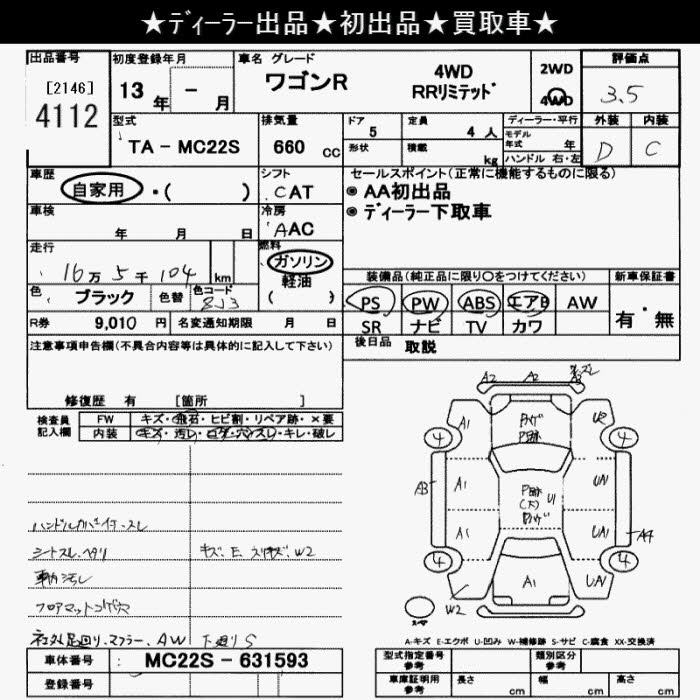 ★ディーラー出品★初出品★買取車★
出品番号
[2146]
4112
初度登録年月
13年 - 月
車名 グレード
ワゴンR 4WD
RRリミテッド
2WD
4WD
評価点
3.5
型式
TA - MC22S
排気量
660 cc
ドア
5
形状
定員
4 人
積載
kg
ディーラー・平行
モデル
年式 年
ハンドル 右・左
外装
D
内装
C
車歴
自家用 ・( )
シフト
CAT
車検
年 月 日
冷房
AAC
セールスポイント(正常に機能するものに限る)
◉ AA初出品
◉ ディーラー下取車
走行
16万 5千 104 km
燃料
ガソリン
軽油
( )
色
ブラック
色替
色コード
ZJ3
R券 9,010 円
名変通知期限 月 日
装備品(純正品に限り○をつけてください)
PS PW ABS エアB AW
SR ナビ TV カワ
新車保証書
有・無
後日品 取説
注意事項申告欄(不具合内容等は具体的に記入して下さい)
修復歴 有 [箇所 ]
検査員
記入欄
FW キズ・飛石・ヒビ割・リペア跡・×要
内装 キズ・汚レ・コゲ・穴・スレ・キレ・破レ
シートスレ、ヘタリ
車内汚レ
フロアマットコゲ穴
社外足回り、マフラー、AW 下廻りS
キズ、E、スリキズ、W2
A2 A2 A3
A1 U2
4 4
A3 A1 U1 A1 A4
4 4
W2 A1
A-キズ E-エクボ U-凹み W-補修跡 S-サビ C-腐食 XX-交換済
車体番号 : MC22S - 631593
登録番号
型式指定番号
参考
類別区分
参考
車庫証明用
参考
長さ cm
幅 cm
高さ cm